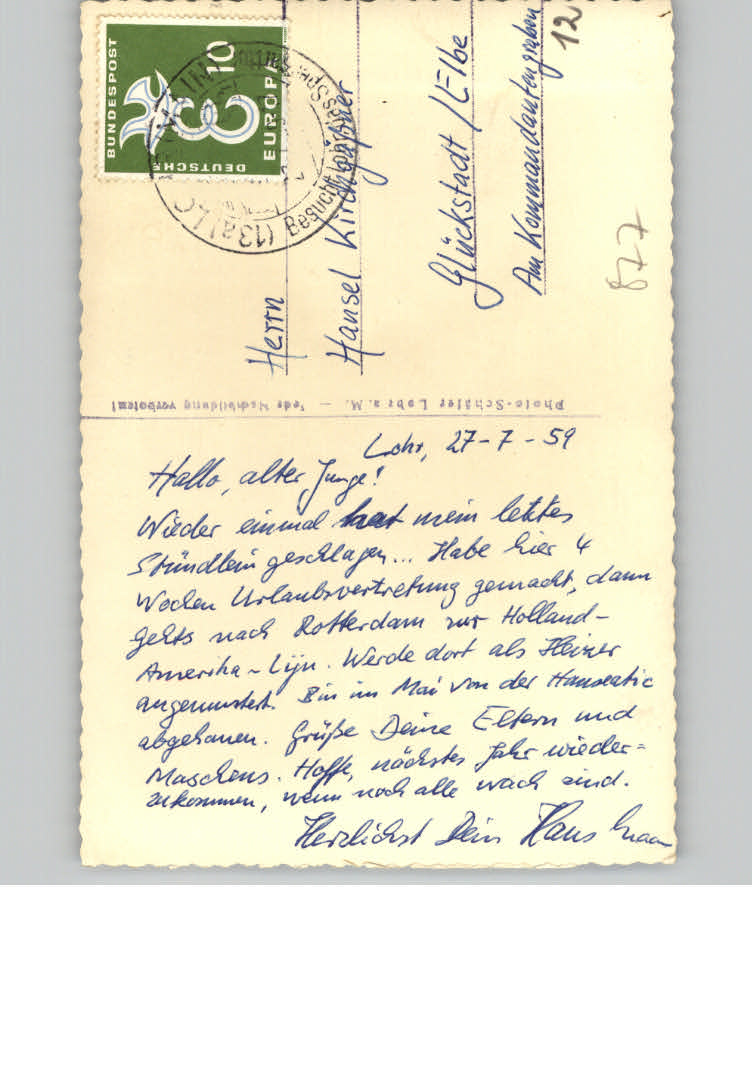 BUNDESPOST
DEUTSCHE
EUROPA
10
(13a) LO
Besucht
Herrn
Hansel
Glückstadt / Elbe
Am Kommandantengraben
12
877
Photo-Schäfer Lohr a. M. — Jede Nachbildung verboten!
Lohr, 27-7-59
Hallo, alter Junge!
Wieder einmal hat mein letztes
Stündlein geschlagen... Habe hier 4
Wochen Urlaubsvertretung gemacht, dann
gehts nach Rotterdam zur Holland-
Amerika-Lijn. Werde dort als Heizer
angemustert. Bin im Mai von der Hanseatic
abgehauen. Grüße Deine Eltern und
Maschens. Hoffe, nächstes Jahr wieder=
zukommen, wenn noch alle wach sind.
Herzlichst Dein Hans